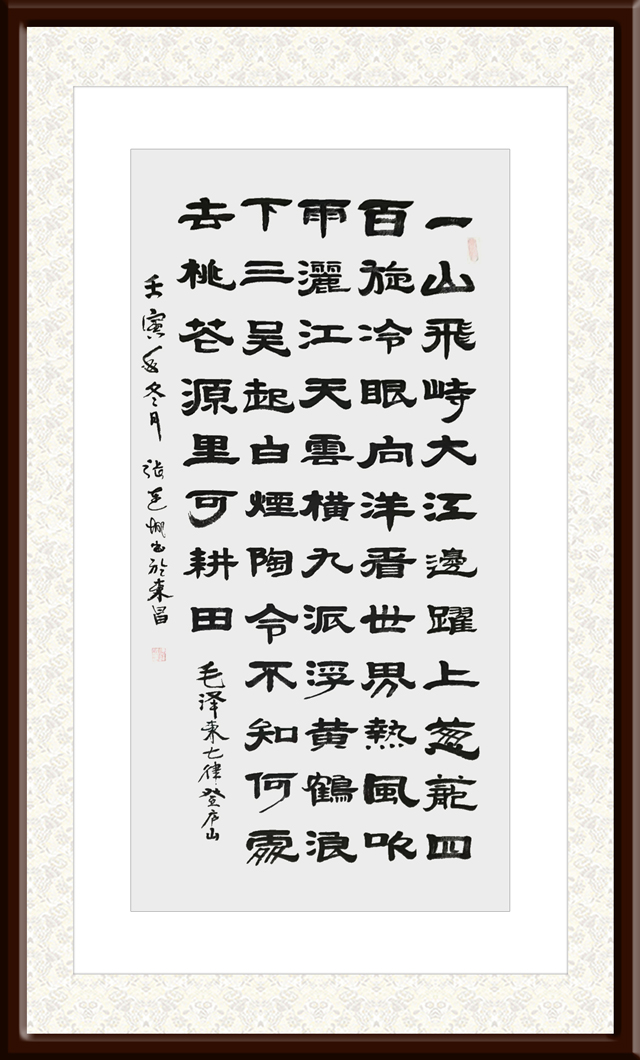 一山飛峙大江邊躍上葱蘢四
百旋冷眼向洋看世界熱風吹
雨灑江天雲橫九派浮黄鶴浪
下三吴起白煙陶令不知何處
去桃花源里可耕田
毛泽東七律登庐山
壬寅年冬月 張书於東昌